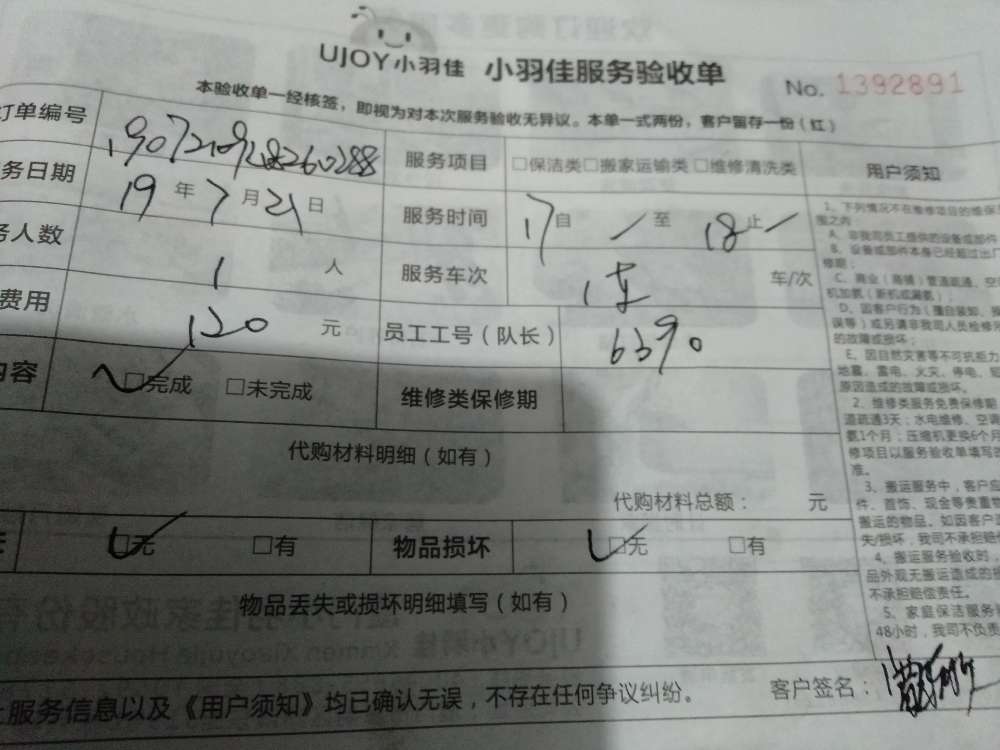 UJOY小羽佳 小羽佳服务验收单 No. 1392891
本验收单一经核签，即视为对本次服务验收无异议。本单一式两份，客户留存一份（红）
订单编号
服务项目 □保洁类□搬家运输类□维修清洗类
务日期 19年7月21日
服务时间 17自 / 至 18止 /
务人数 1 人
服务车次 1车 车/次
费用 120 元
员工工号（队长） 6390
内容 □完成 □未完成
维修类保修期
代购材料明细（如有）
代购材料总额： 元
□无 □有 物品损坏 □无 □有
物品丢失或损坏明细填写（如有）
服务信息以及《用户须知》均已确认无误，不存在任何争议纠纷。 客户签名：
用户须知
1、下列情况不在维修项目的维保
围之内
A、非我司员工提供的设备或部件
B、设备或部件本身已经超过出厂
修期；
C、商业（商铺）管道疏通、空
机加氨（新机或漏氨）；
D、因客户行为（擅自装卸、操
误等）或另请非我司人员检修
的故障或损坏；
E、因自然灾害等不可抗拒力
地震、雷电、火灾、停电、
原因造成的故障或损坏。
2、维修类服务免费保修期
道疏通3天；水电维修、空调
氨1个月；压缩机更换6个月
修项目以服务验收单填写的
准。
3、搬运服务中，客户应
件、首饰、现金等贵重物
搬运的物品。如因客户
失/损坏，我司不承担赔
4、搬运服务验收时，
品外观无搬运造成的损
不承担赔偿责任。
5、家庭保洁服务
48小时，我司不负责